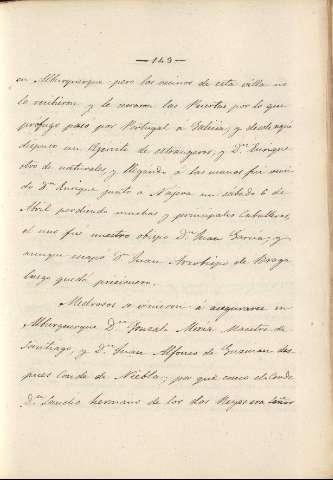 — 149 —
en Alburquerque pero los vecinos de esta villa no
le recibieron y le cerraron las Puertas por lo que
profugo paso por Portugal á Galicia, y desde aqui
dispuso un Egercito de estrangeros, y Dⁿ. Enrique
otro de naturales, y llegando á las manos fué venci-
do Dⁿ. Enrique junto a Najera un sabado 6 de
Abril perdiendo muchos y principales Caballeros,
el uno fué nuestro obispo Dⁿ. Juan Garcia; y
aunque escapo Dⁿ. Juan Arzobispo de Braga
luego quedó prisionero.
Medrosos se vinieron á asegurarse en
Alburquerque Dⁿ. Gonzalo Mexia Maestre de
Santiago, y Dⁿ. Juan Alfonso de Guzman des-
pues Conde de Niebla; por que como el Conde
Dⁿ. Sancho hermano de los dos Reyes era Señor